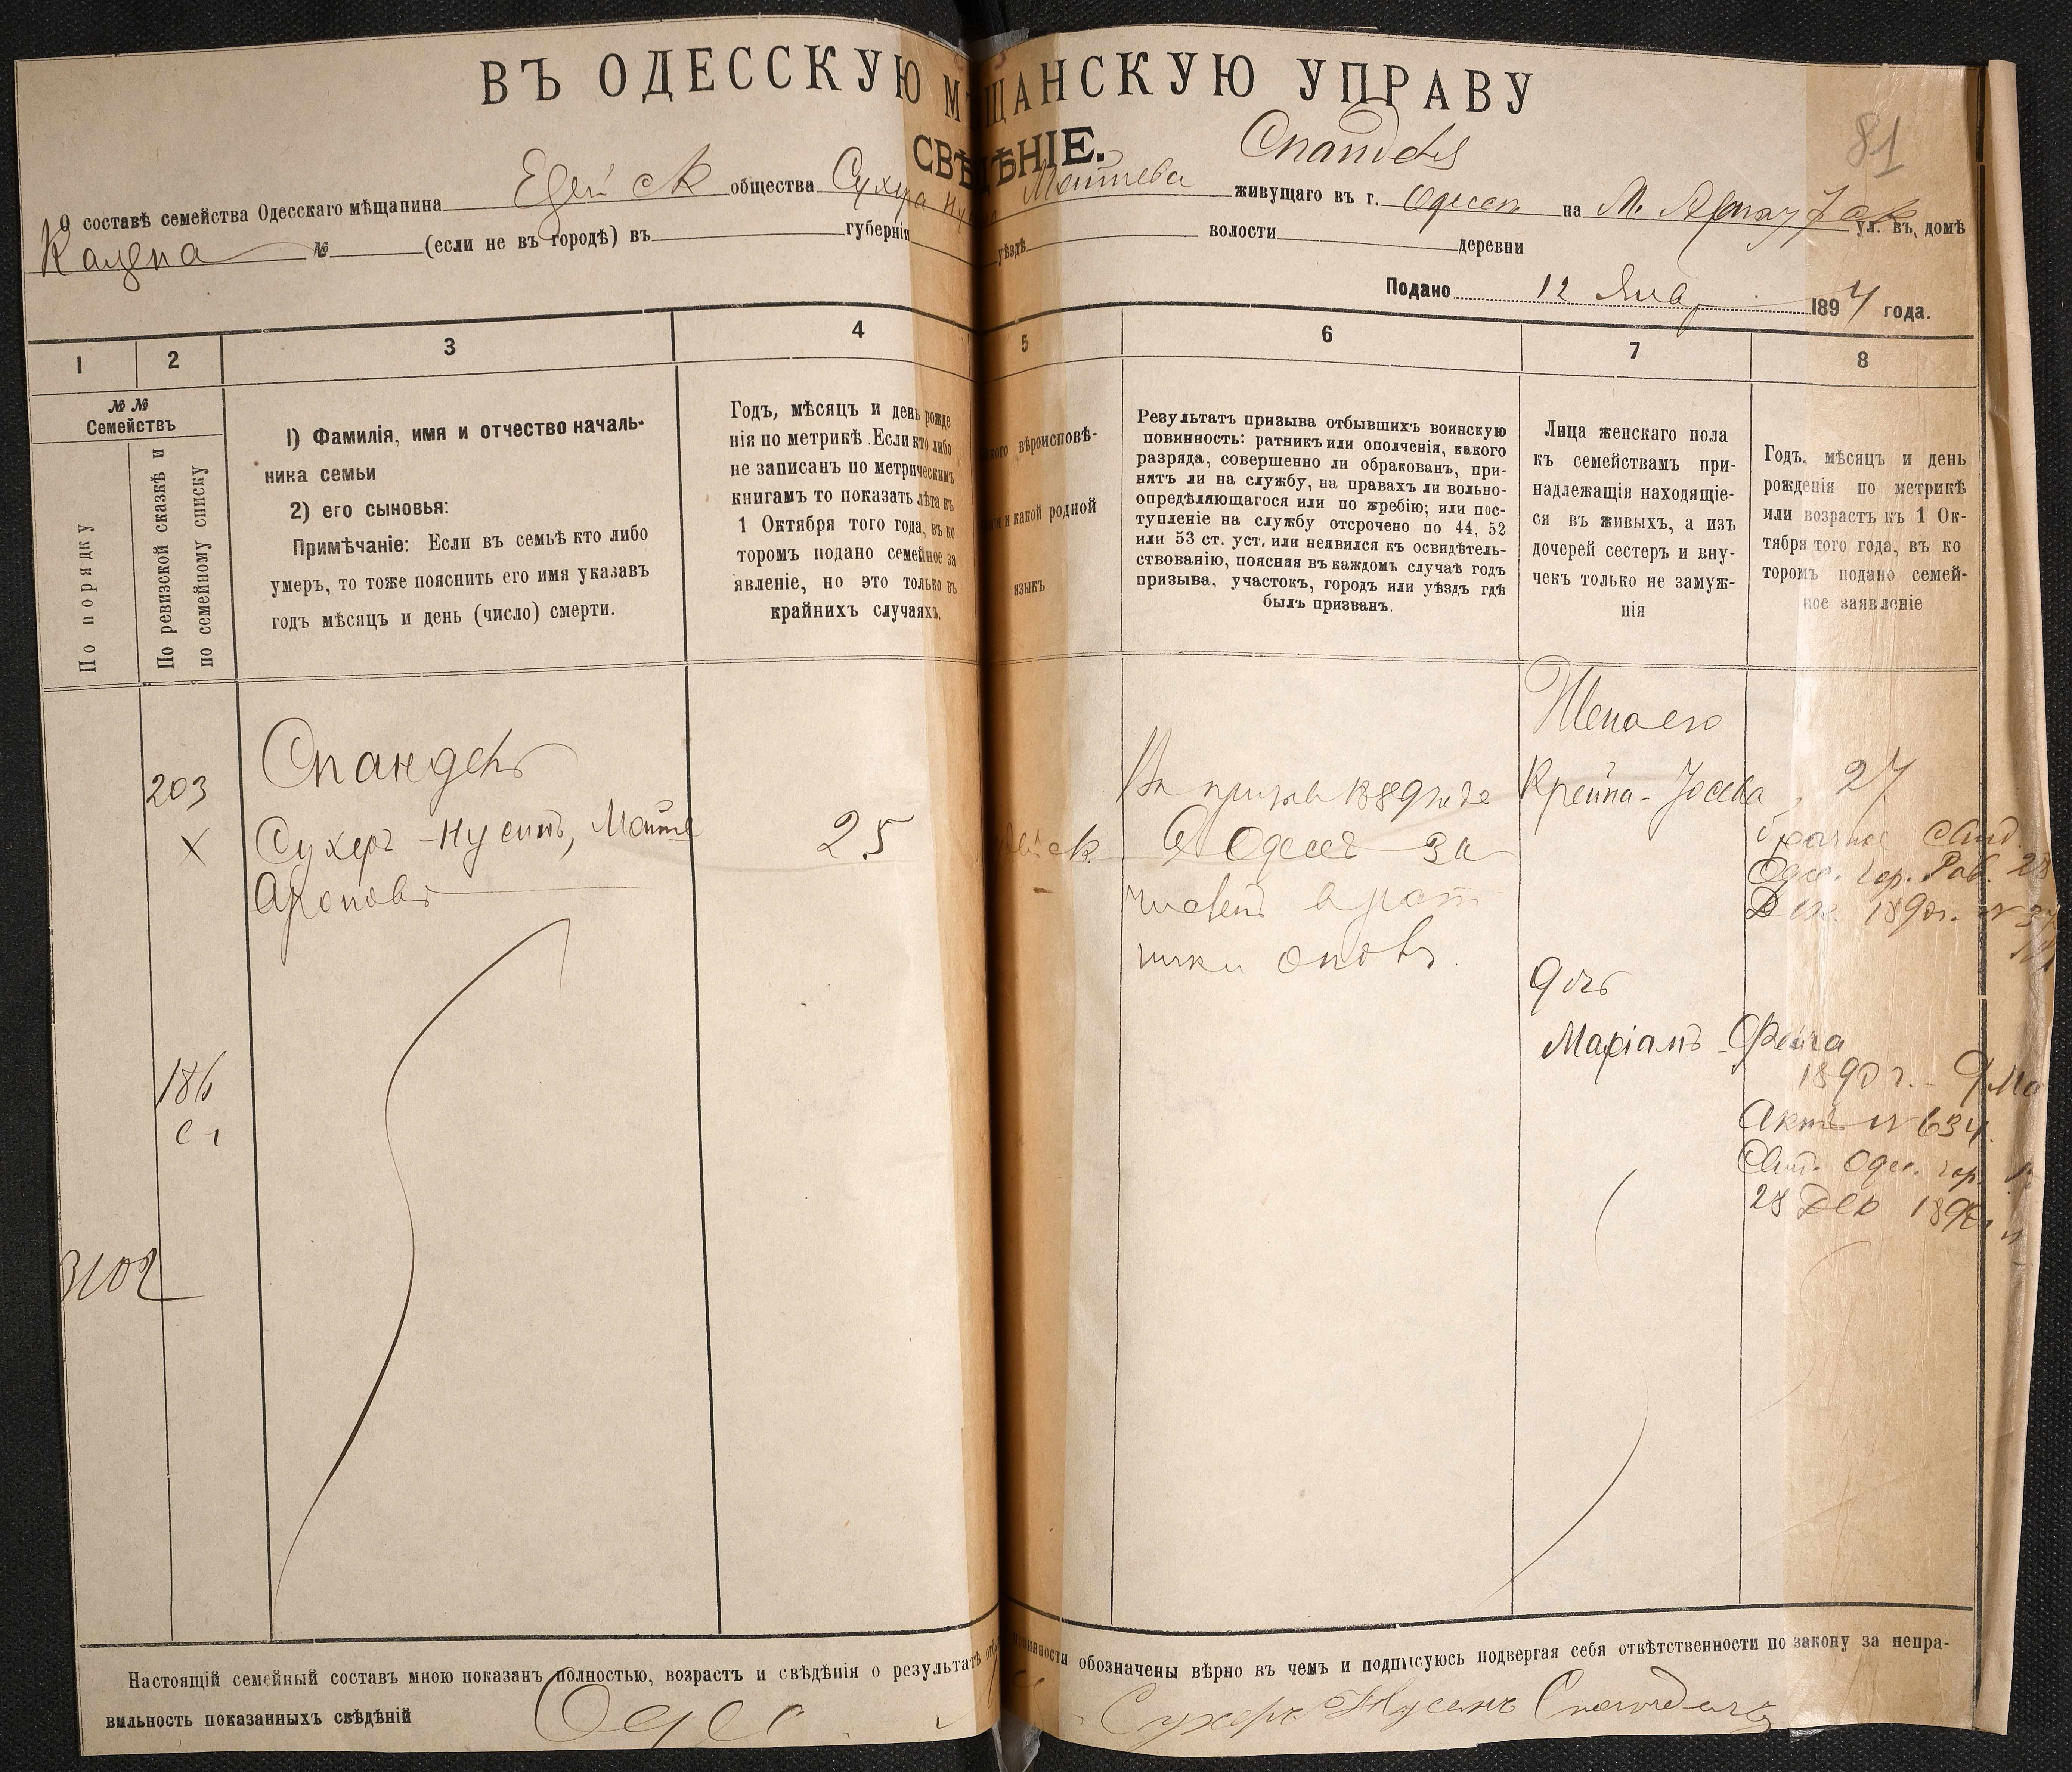 ВЪ ОДЕССКУЮ МѢЩАНСКУЮ УПРАВУ
СВѢДѢНІЕ.
81
О составѣ семейства Одесскаго мѣщанина общества Сухера живущаго въ г. Одессѣ на М. Арнаутск ул. въ домѣ
Кацена № (если не въ городѣ) въ губерніи уѣздѣ волости деревни
Подано 12 Янв 1894 года.
1 2 3 4 5 6 7 8
№ №
Семействъ
По порядку
По ревизской сказкѣ и
по семейному списку
1) Фамилія, имя и отчество началь-
ника семьи
2) его сыновья:
Примѣчаніе: Если въ семьѣ кто либо
умеръ, то тоже пояснить его имя указавъ
годъ мѣсяцъ и день (число) смерти.
Годъ, мѣсяцъ и день рожде
нія по метрикѣ. Если кто либо
не записанъ по метрическимъ
книгамъ то показать лѣта къ
1 Октября того года, въ ко
торомъ подано семейное за
явленіе, но это только въ
крайнихъ случаяхъ.
вѣроисповѣ-
и какой родной
языкъ
Результатъ призыва отбывшихъ воинскую
повинность: ратникъ или ополченія, какого
разряда, совершенно ли обракованъ, при-
нятъ ли на службу, на правахъ ли вольно-
опредѣляющагося или по жребію; или пос-
тупленіе на службу отсрочено по 44, 52
или 53 ст. уст, или неявился къ освидѣтель-
ствованію, поясняя въ каждомъ случаѣ годъ
призыва, участокъ, городъ или уѣздъ гдѣ
былъ призванъ.
Лица женскаго пола
къ семействамъ при-
надлежащія находящіе-
ся въ живыхъ, а изъ
дочерей сестеръ и вну-
чекъ только не замуж-
нія
Годъ, мѣсяцъ и день
рожденія по метрикѣ
или возрастъ къ 1 Ок-
тября того года, въ ко
торомъ подано семей-
ное заявленіе
203
Х
186
3102
Спандеръ
Сухеръ-Нусинъ,
Ароновъ
25
Въ призывъ 1889 года
въ Одессѣ за
численъ в рат
ники
Жена его
Крейна-Іосева
27
Одес. гор. Раб. 28
Дек. 1890г.
Дочь
Маріамъ-Фейга
1890 г. - 9 Ма
Актъ № 634
Одес. гор.
28 Дек
Настоящій семейный составъ мною показанъ полностью, возрастъ и свѣдѣнія о результатѣ обозначены вѣрно въ чемъ и подписуюсь подвергая себя отвѣтственности по закону за непра-
вильность показанныхъ свѣдѣній
Сухеръ Нусинъ